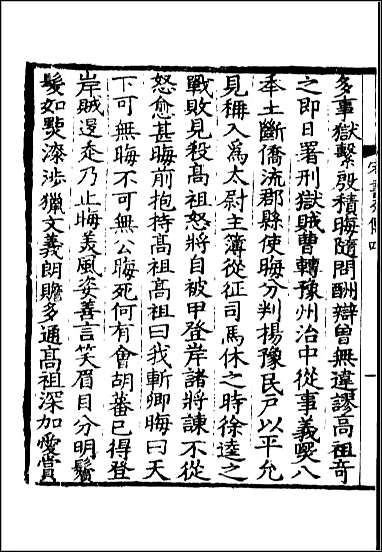 多事獄繫殷積晦隨問酬辯曾無違謬高祖奇
之即日署刑獄賊曹轉豫州治中從事義熙八
年土斷僑流郡縣使晦分判揚豫民戶以平允
見稱入爲太尉主簿從征司馬休之時徐逵之
戰敗見殺高祖怒將自被甲登岸諸將諫不從
怒愈甚晦前抱持高祖高祖曰我斬卿晦曰天
下可無晦不可無公晦死何有會胡蕃已得登
岸賊退走乃止晦美風姿善言笑眉目分明鬢
髮如點漆涉獵文義朗贍多通高祖深加愛賞